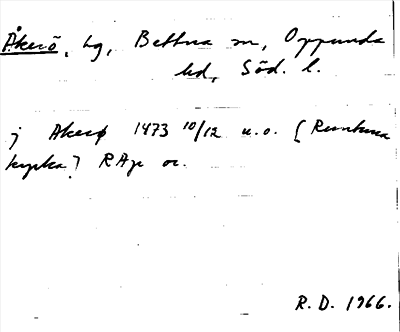 Åkerö, hg, Bettna sn, Oppunda
hd, Söd. l.
j Akerø 1473 10/12 u.o. [Runtuna
kyrka?] RAp or.
R. D. 1966.